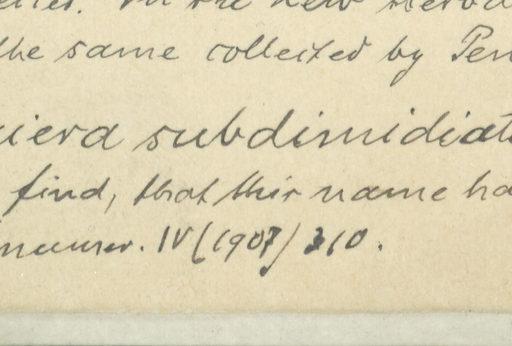 In the new
the same collected by Pen
iera subdimidiat
find, that this name ha
IV (1907) 310.